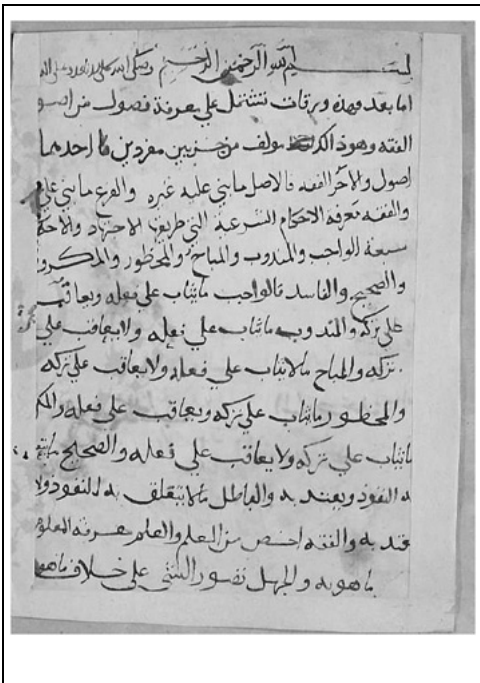 بسم الله الرحمن الرحيم وصلى الله على
اما بعد فهذه ورقات تشتمل على معرفة فصول من اصو
الفقه وهو ذالك مولف من جزيين مفردين فاحدهما
اصول والاخر الفقه فالاصل ما بني عليه غيره والفرع ما بني على
والفقه معرفة الاحكام الشرعية التي طريقها الاجتهاد والاحكا
سبعة الواجب والمندوب والمباح والمحظور والمكرو
والصحيح والفاسد فالواجب ما يثاب على فعله ويعاقب
على تركه والمندوب ما يثاب على فعله ولا يعاقب على
تركه والمباح ما لا يثاب على فعله ولا يعاقب على تركه
والمحظور ما يثاب على تركه ويعاقب على فعله والمك
ما يثاب على تركه ولا يعاقب على فعله والصحيح ما يتع
به النفوذ ويعتد به والباطل ما لا يتعلق به النفوذ ولا
يعتد به والفقه اخص من العلم والعلم معرفة المعلوم
ما هو به والجهل تصور الشي على خلاف ما هو